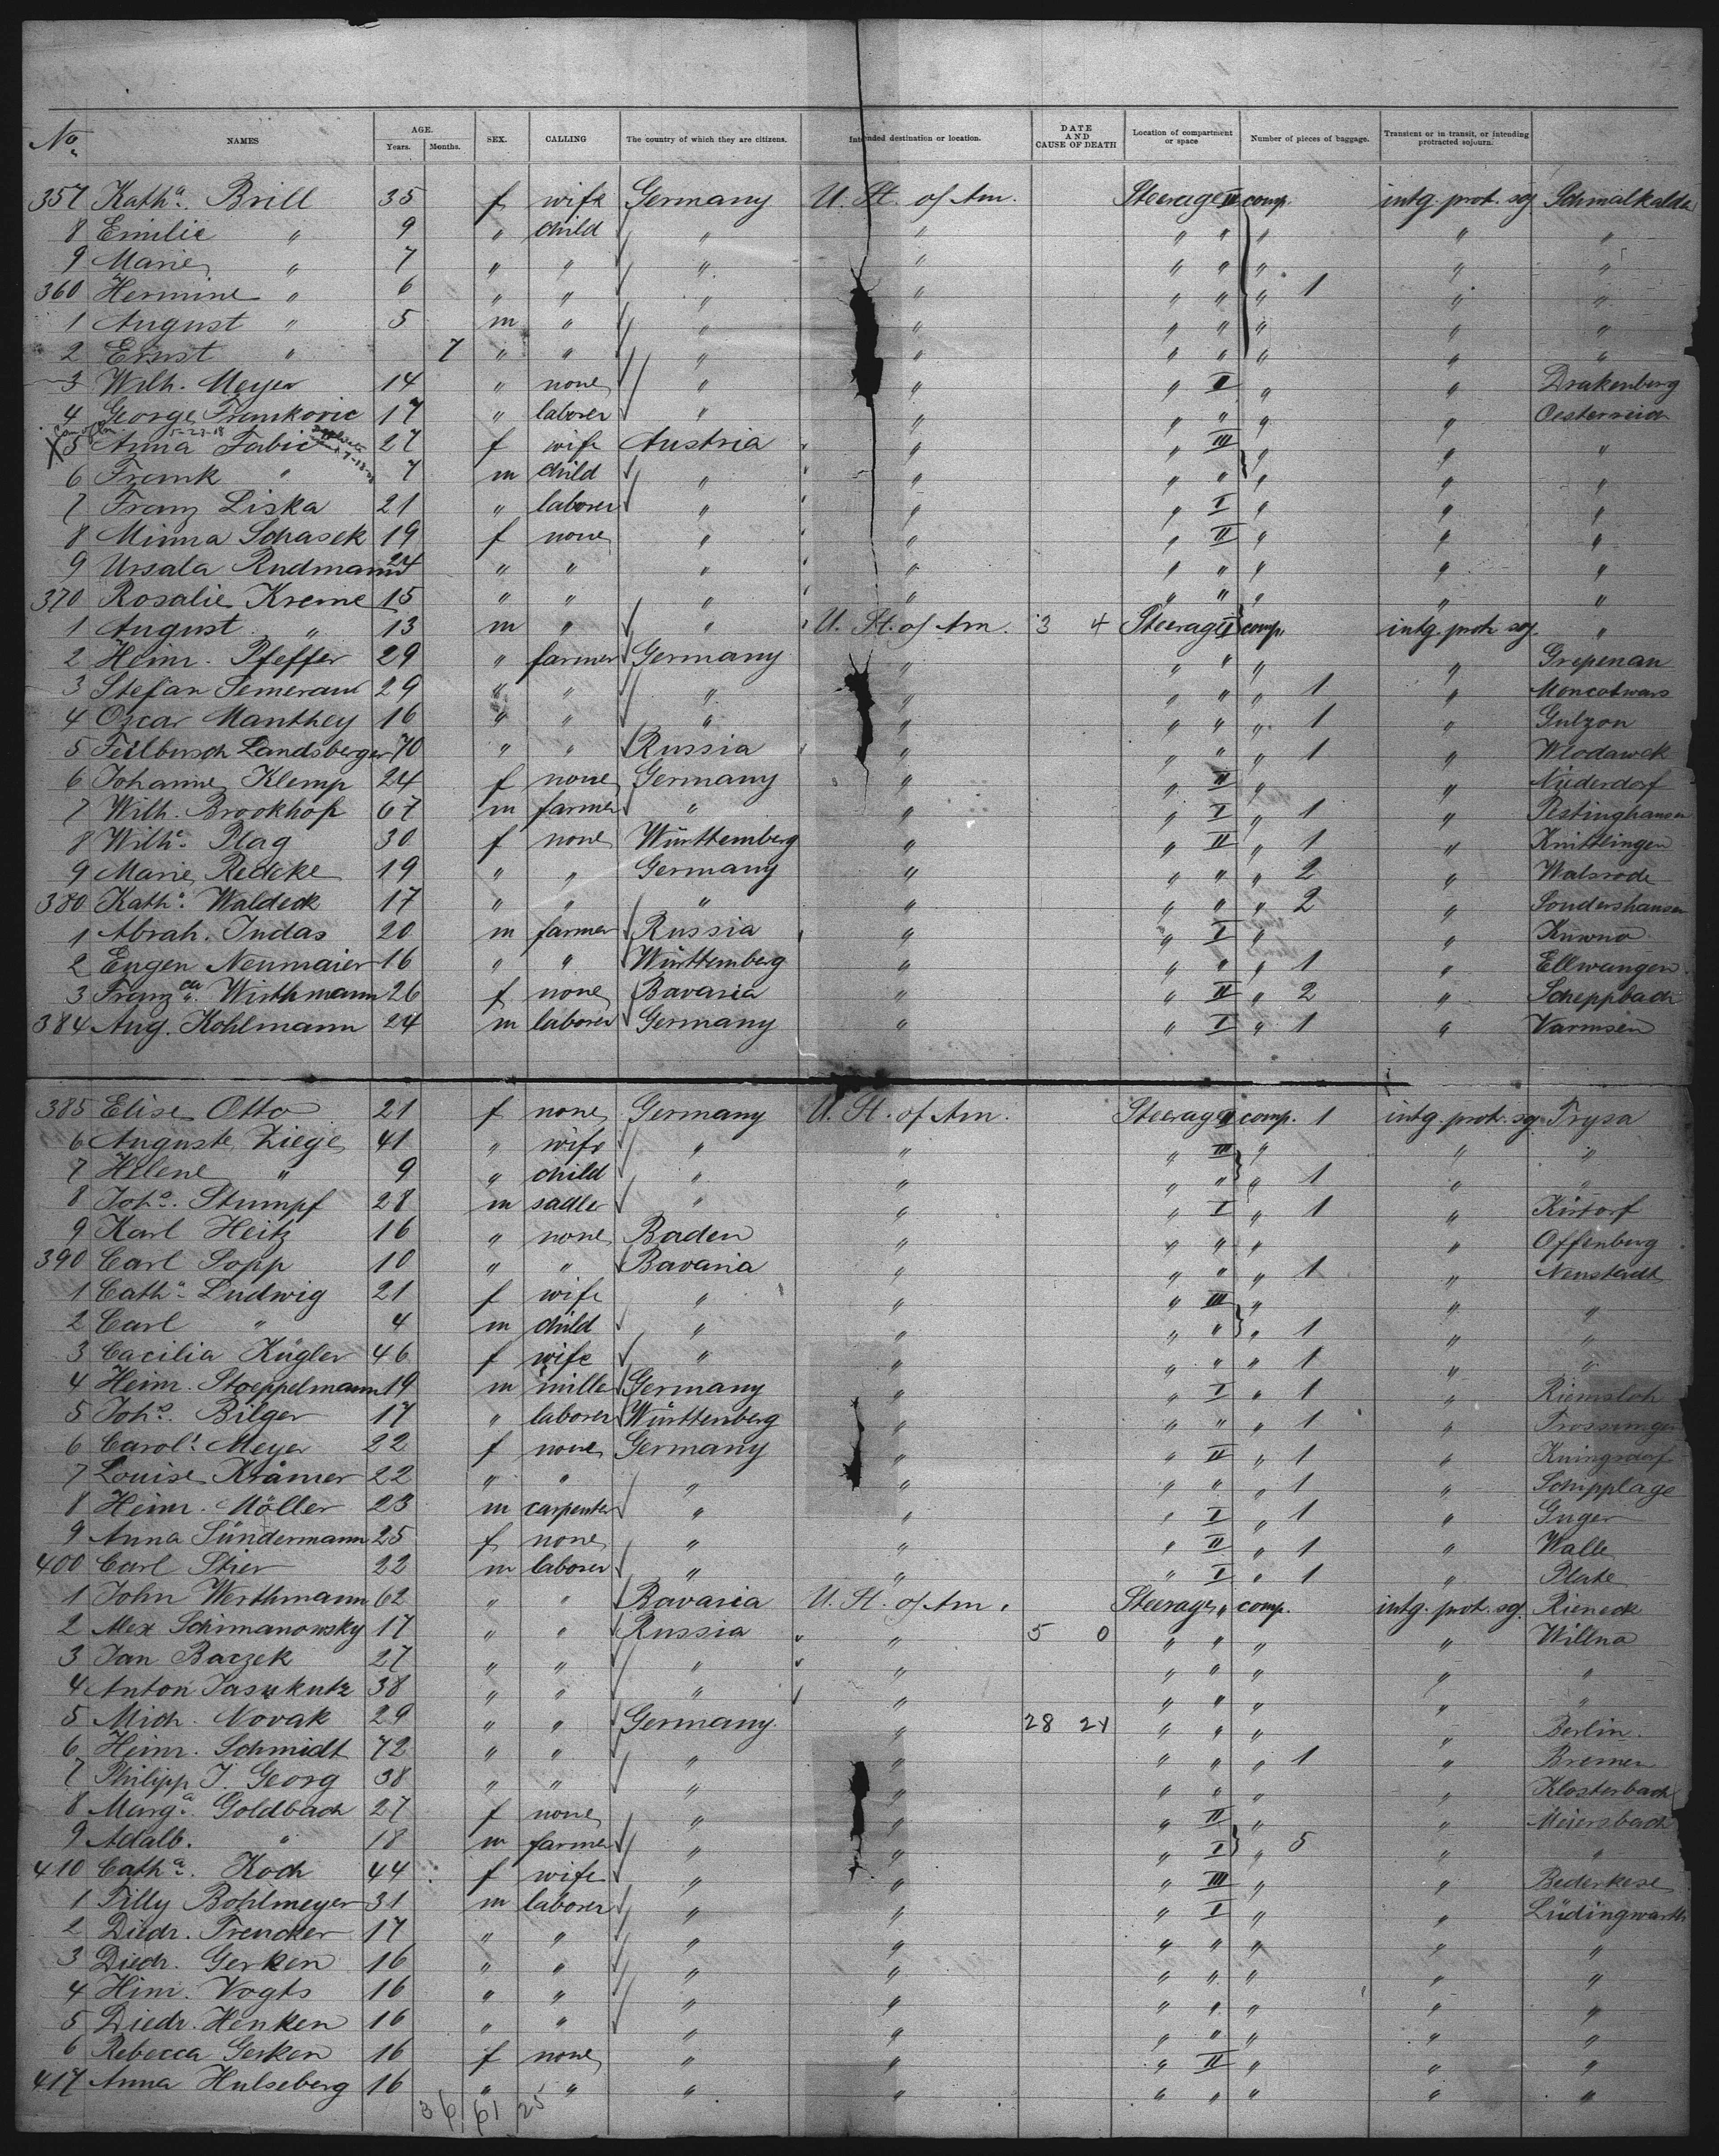 No. NAMES AGE. Years. Months. SEX. CALLING The country of which they are citizens. Intended destination or location. DATE AND CAUSE OF DEATH Location of compartment or space Number of pieces of baggage. Transient or in transit, or intending protracted sojourn.
357 Kath.a Brill 35 f wife Germany U. St. of Am. Steerage II comp. intg. prot. soj Schmalkalde
8 Emilie " 9 " child " " " " " " "
9 Marie " 7 " " " " " " " " "
360 Hermine " 6 " " " " " " " 1 " "
1 August " 5 m " " " " " " " "
2 Ernst " 7 " " " " " " " " "
3 Wilh. Meyer 14 " none " " " I " " Drakenberg
4 George Frankovic 17 " laborer " " " " " " Oesterreich
5 Anna Fabic 27 f wife Austria " " III " " "
6 Frank " 7 m child " " " " " " "
7 Franz Liska 21 " laborer " " " I " " "
8 Minna Schasek 19 f none " " " II " " "
9 Ursala Rudmann 24 " " " " " " " " "
370 Rosalie Kreme 15 " " " " " " " " "
1 August " 13 m " " U. St. of Am. 3 4 Steerage I comp. intg. prot. soj. "
2 Heinr. Pfeffer 29 " farmer Germany " " " " " Grepenau
3 Stefan Semerau 29 " " " " " " " 1 "
4 Oscar Manthey 16 " " " " " " " 1 " Gulzon
5 Landsberger 70 " " Russia " " " " 1 " Wlodawek
6 Johanne Klemp 24 f none Germany " " II " " Niederdorf
7 Wilh. Brookhof 67 m farmer " " " I " 1 "
8 Wilh.e Plag 30 f none Württemberg " " II " 1 " Knittlingen
9 Marie Redeke 19 " " Germany " " " " 2 " Walsrode
380 Kath.a Waldeck 17 " " " " " " " 2 " Sondershausen
1 Abrah. Judas 20 m farmer Russia " " I " " Kowno
2 Eugen Neumaier 16 " " Württemberg " " " " 1 " Ellwangen
3 Franz.ca Wirthmann 26 f none Bavaria " " II " 2 " Scheppbach
384 Aug. Kohlmann 24 m laborer Germany " " I " 1 " Varmsen
385 Elise Otto 21 f none Germany U. St. of Am. Steerage II comp. 1 intg. prot. soj. Frysa
6 Auguste Ziege 41 " wife " " " III " " "
7 Helene " 9 " child " " " " " 1 " "
8 Joh.s Stumpf 28 m sadler " " " I " 1 " Kirtorf
9 Karl Heitz 16 " none Baden " " " " " Offenberg
390 Carl Sopp 10 " " Bavaria " " " " 1 " Neustadt
1 Cath.a Ludwig 21 f wife " " " III " " "
2 Carl " 4 m child " " " " " 1 " "
3 Cacilia Kügler 46 f wife " " " " " 1 " "
4 Heinr. Stoeppelmann 19 m miller Germany " " I " 1 " Riemsloh
5 Joh.s Bilger 17 " laborer Württenberg " " " " 1 " Trossingen
6 Carol.e Meyer 22 f none Germany " " II " 1 "
7 Louise Krämer 22 " " " " " " " 1 " Schipplage
8 Heinr. Möller 23 m carpenter " " " I " 1 " Guger
9 Anna Sündermann 25 f none " " " II " 1 " Walle
400 Carl Stier 22 m laborer " " " I " 1 " Plate
1 John Werthmann 62 " " Bavaria U. St. of Am. Steerage " comp. intg. prot. soj. Rieneck
2 Alex Schimanowsky 17 " " Russia " 5 0 " " " " Willna
3 Jan Baczek 27 " " " " " " " " "
4 Anton Jasukutz 38 " " " " " " " " "
5 Mich. Novak 29 " " Germany " 28 24 " " " " Berlin
6 Heinr. Schmidt 72 " " " " " " " 1 " Bremen
7 Philipp J. Georg 38 " " " " " " " " Klosterbach
8 Marg.a Goldbach 27 f none " " " II " " Meiersbach
9 Adalb. " 18 m farmer " " " I " 5 " "
410 Cath.a Koch 44 f wife " " " III " " Bederkese
1 Tilly Bohlmeyer 31 m laborer " " " I " " Lüdingworth
2 Diedr. Trencker 17 " " " " " " " " "
3 Diedr. Gerken 16 " " " " " " " " "
4 Hinr. Vogts 16 " " " " " " " " "
5 Diedr. Henken 16 " " " " " " " " "
6 Rebecca Gerken 16 f none " " " II " " "
417 Anna Hulseberg 16 " " " " " " " " "
36 61 25